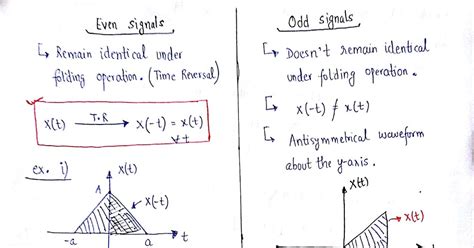 Even signals
↳ Remain identical under
folding operation. (Time Reversal)
x(t) T.R → x(-t) = x(t)
∀ t
ex. i)
x(t)
A
x(-t)
-a
a
t
Odd signals
↳ Doesn't remain identical
under folding operation.
↳ x(-t) ≠ x(t)
↳ Antisymmetrical waveform
about the y-axis.
x(t)
x(t)